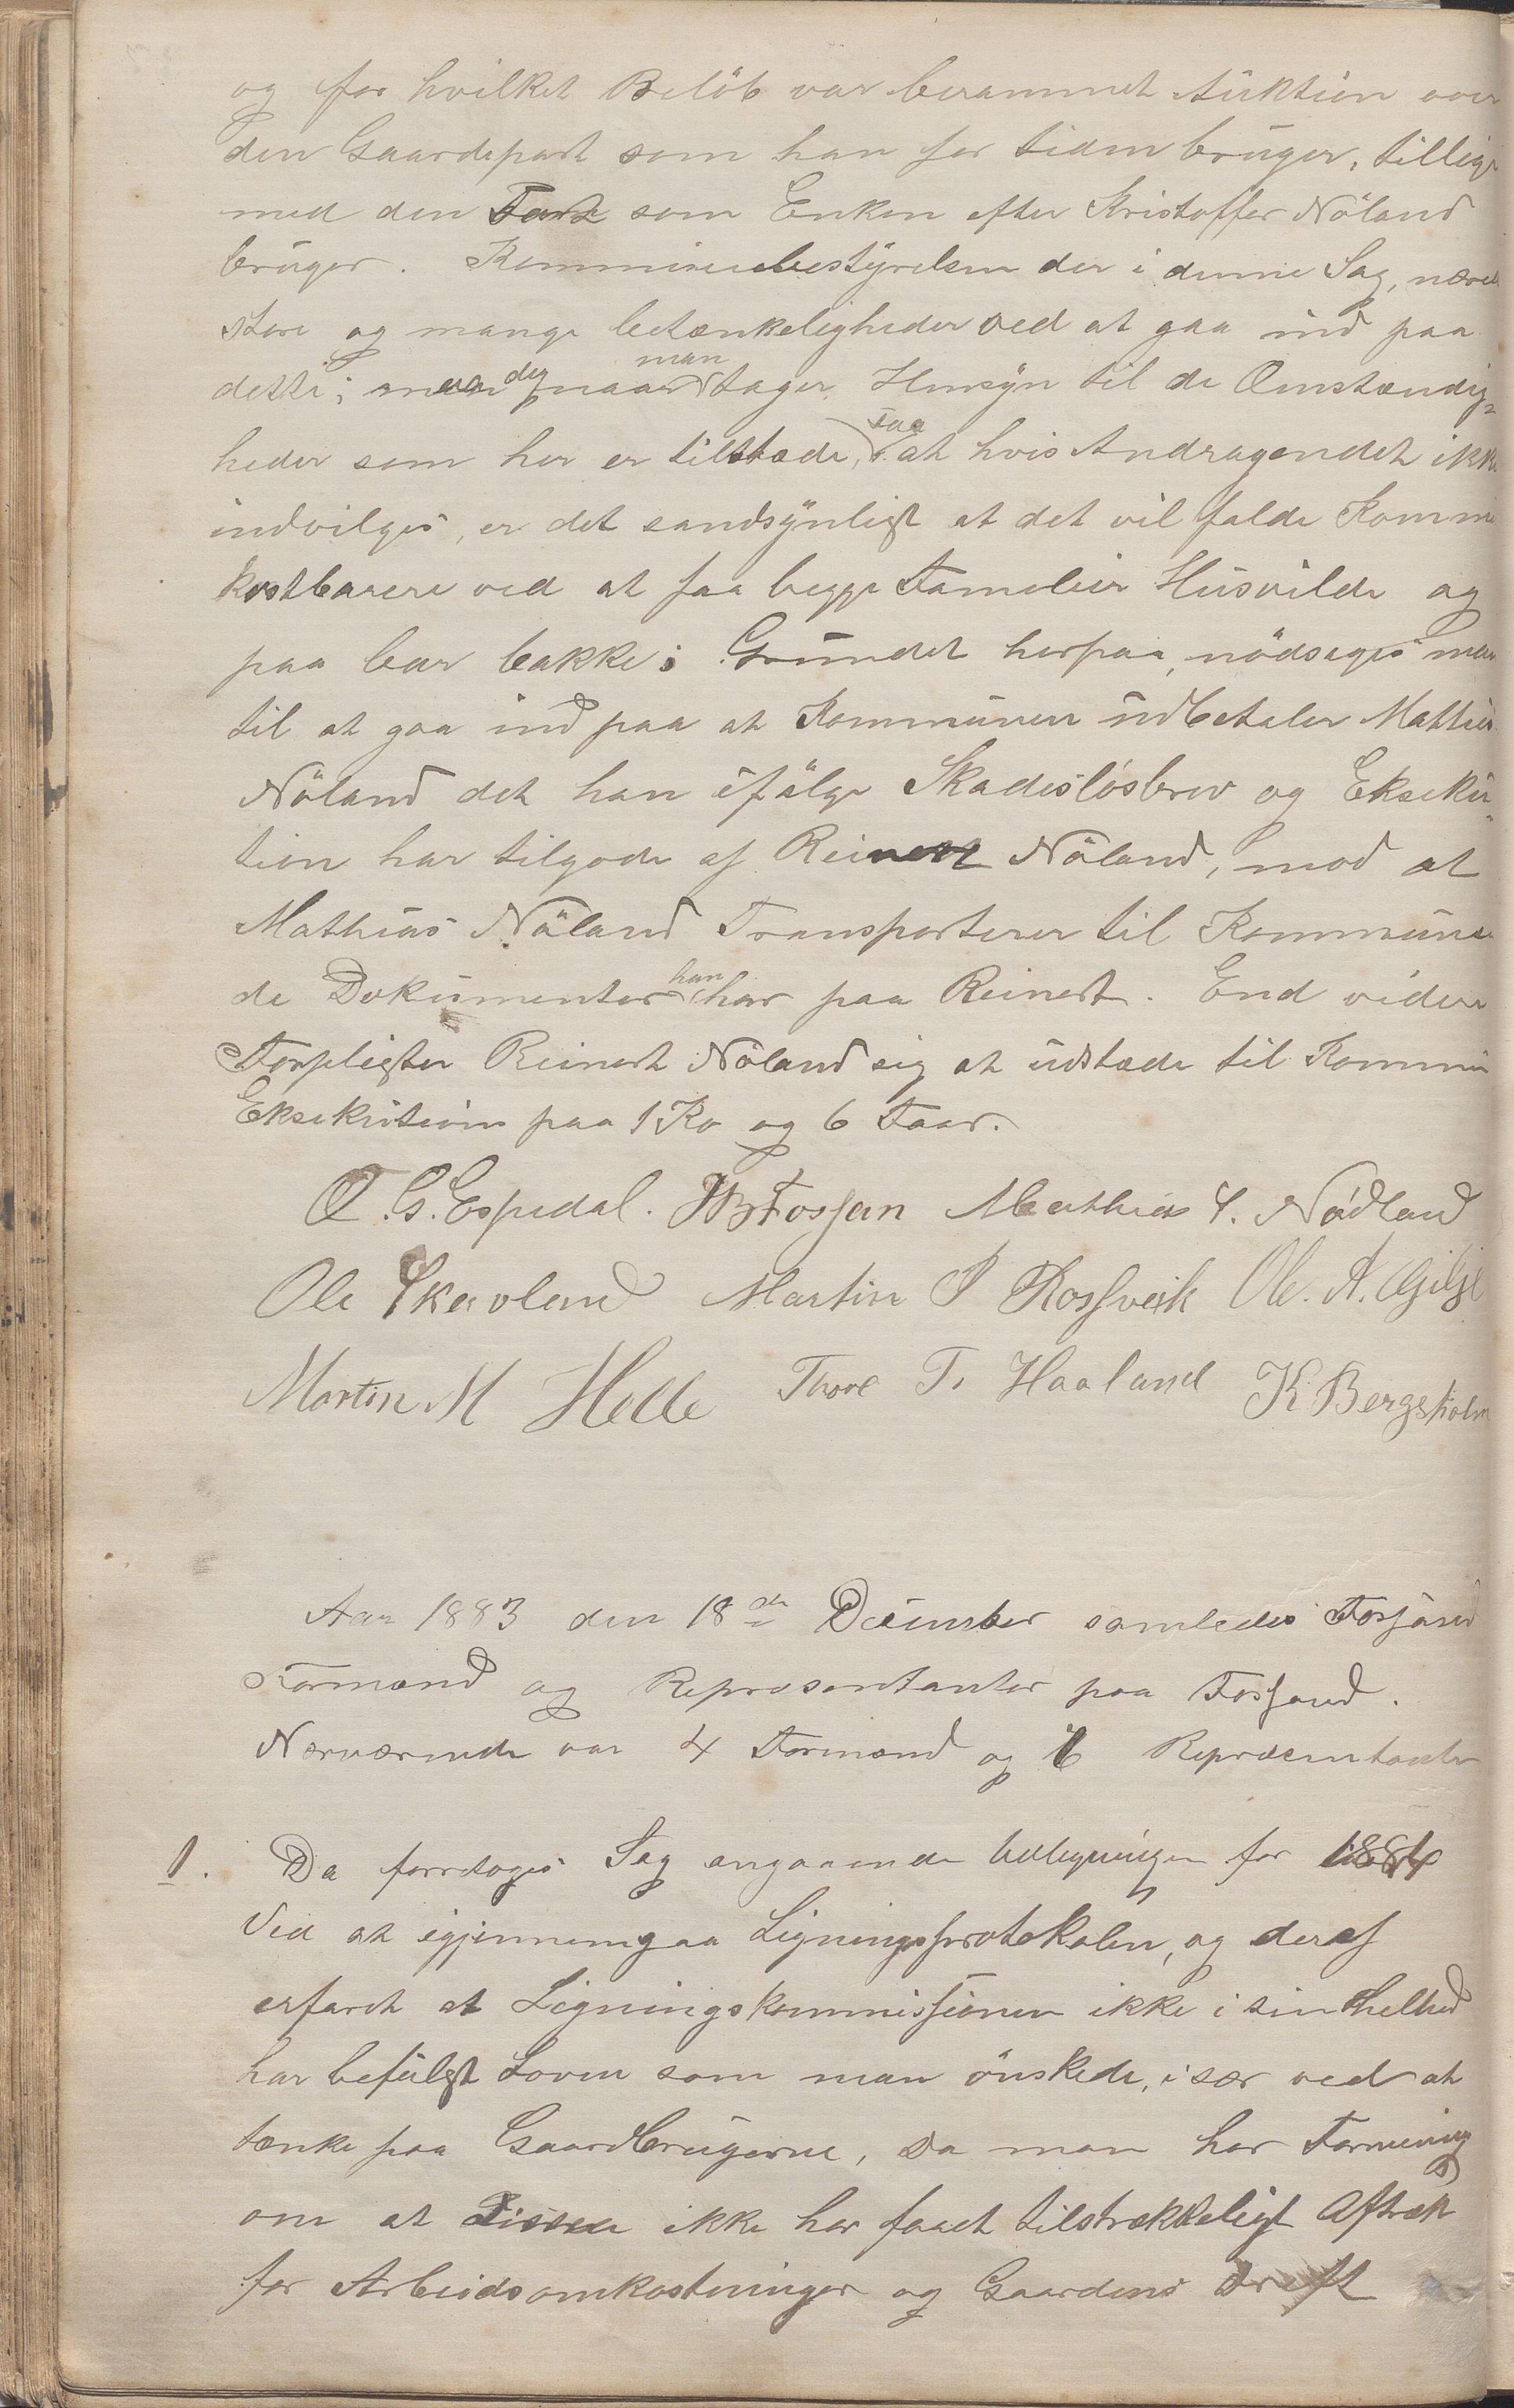 og for hvilket Belöb var berammet Auktion over
den Gaardepart som han for tiden brüger, tillige
med den Part som Enken efter Kristoffer Nöland
brüger. Kommunebestÿrelsen der i denne Sag, nærer
store og mange betænkeligheder ved at gaa ind paa
dette; men dog naar man tager Hensÿn til de Omstændig-
heder som her er tilstæde, saa at hvis Andragendet ikke
indvilges, er det sandsÿnligt at det vil falde Kommu
kostbarere ved at faa begge Familier Hüsvilde og
paa bar bakke; Gründet herpaa, nödsages man
til at gaa ind paa at Kommünen üdbetaler Mathias
Nöland det han ifölge Skadeslösbrev og Ekseku-
tion har tilgode af Reinert Nöland, mod at
Mathias Nöland Transporterer til Kommüne
de Dokümenter han har paa Reinert. End videre
Forpligter Reinert Nöland sig at üdstæde til Kommü
Eksekütion paa 1 Ko og 6 Faar.
O. G. Espedal. JB Fossan Mathias T. Nødland
Ole Skavland Martin P Rossvik Ole. A. Gilje
Martin M Helle Thore T. Haaland K Bergsholm
Aar 1883 den 18de December samledes Forsand
Formænd og Repræsentanter paa Forsand.
Nærværende var 4 Formænd og 6 Repræsentanter
1. Da foretoges Sag angaaende Udligningen for 1884
Ved at igjennemgaa Ligningsprotokolen, og deraf
erfaret at Ligningskommissionen ikke i sin Helhed
har befülgt Loven som man önskede, især ved at
tænke paa Gaardbrügerne, da man har Formening
om at Disse ikke har faaet tilstrækkeligt Aftræk
for Arbeidsomkostninger og Gaardens Drift